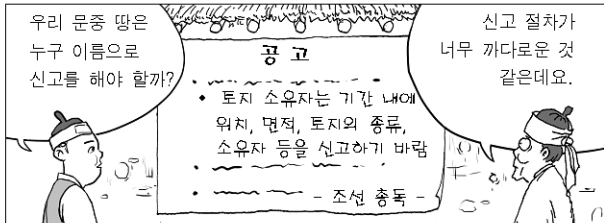 우리 문중 땅은
누구 이름으로
신고를 해야 할까?
공고
• 토지 소유자는 기간 내에
위치, 면적, 토지의 종류,
소유자 등을 신고하기 바람
- 조선 총독 -
신고 절차가
너무 까다로운 것
같은데요.